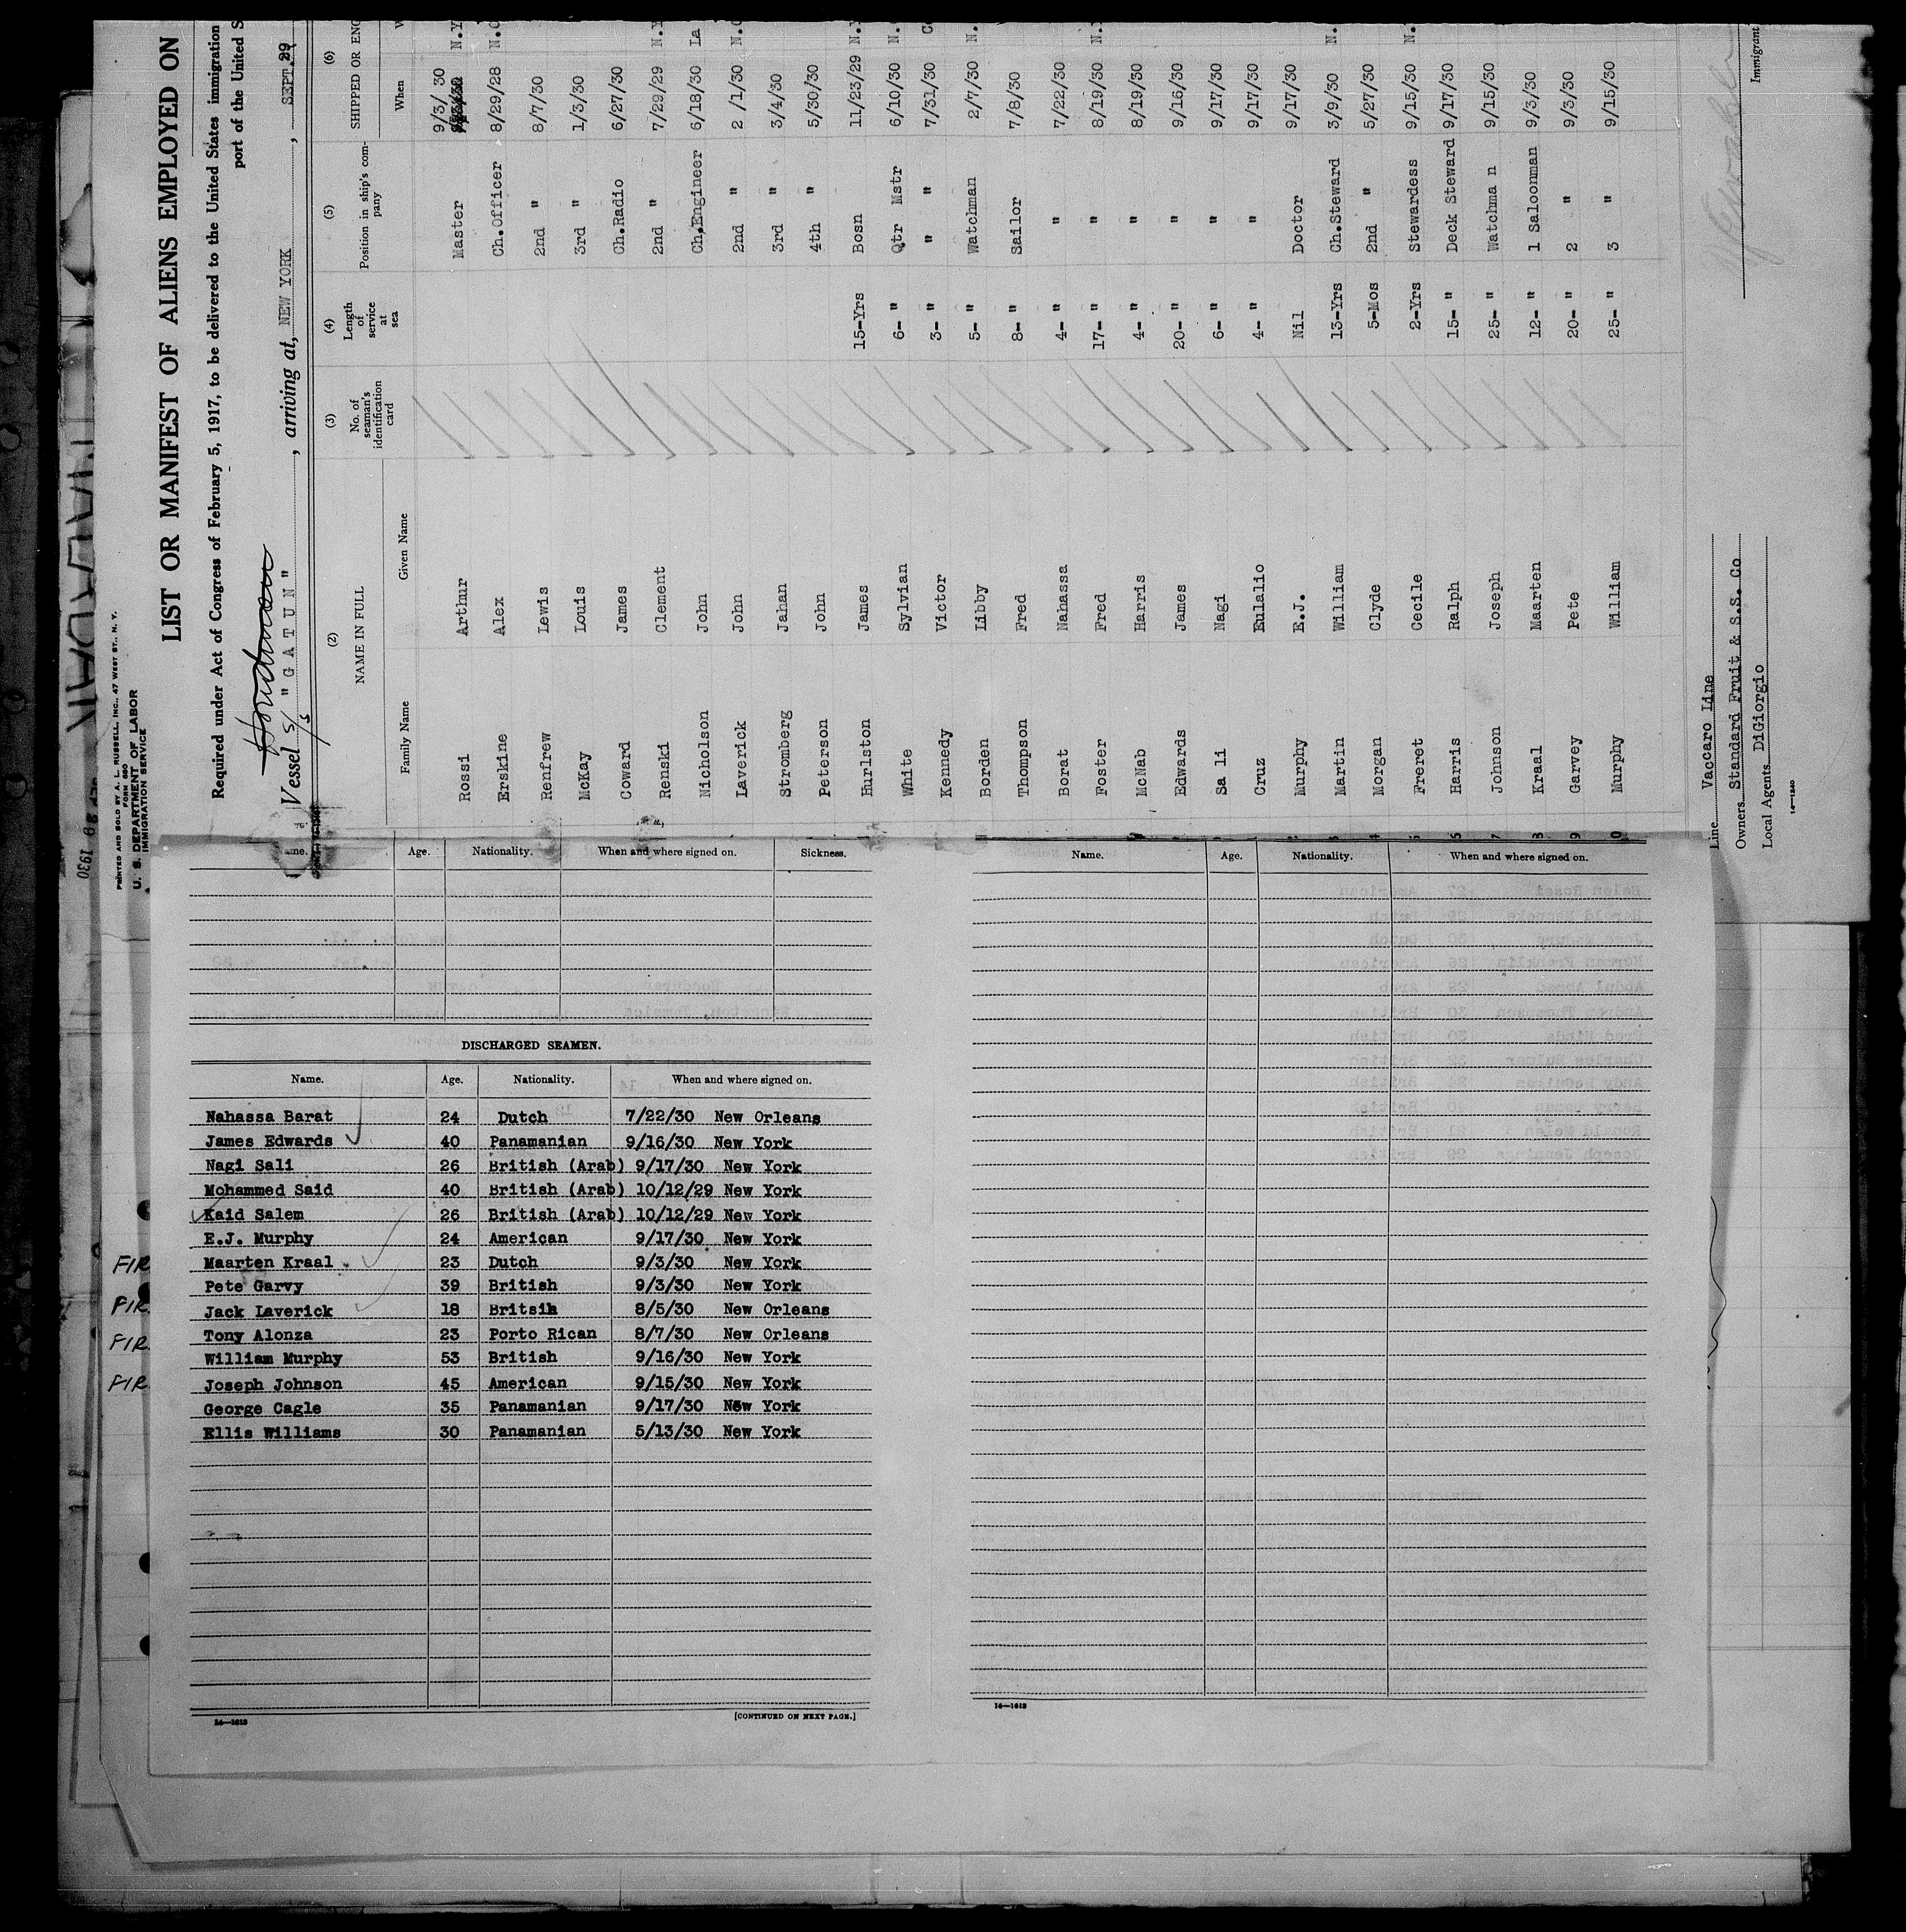 PRINTED AND SOLD BY A. L. RUSSELL, INC., 47 WEST ST., N. Y.
FORM 680
U. S. DEPARTMENT OF LABOR
IMMIGRATION SERVICE
LIST OR MANIFEST OF ALIENS EMPLOYED ON
Required under Act of Congress of February 5, 1917, to be delivered to the United States immigration
port of the United S
Vessel S/S "GATUN", arriving at, NEW YORK, SEPT.29
(2) (3) (4) (5) (6)
NAME IN FULL No. of seaman's identification card Length of service at sea Position in ship's company SHIPPED OR ENG
Family Name Given Name When W
Rossi Arthur Master 9/3/ 30 N.Y
Erskine Alex Ch.Officer 8/29/28 N.O
Renfrew Lewis 2nd " 8/7/30
McKay Louis 3rd " 1/3/30
Coward James Ch.Radio 6/27/30
Renski Clement 2nd " 7/29/29 N.Y
Nicholson John Ch.Engineer 6/18/30 La
Laverick John 2nd " 2 /1/30 N.O
Stromberg Jahan 3rd " 3/4/30
Peterson John 4th " 5/30/30
Hurlston James 15-Yrs Bosn 11/23/29 N.Y
White Sylvian 6- " Qtr Mstr 6/10/30 N.
Kennedy Victor 3- " " " 7/31/30 C
Borden Libby 5- " Watchman 2/7/30 N.
Thompson Fred 8- " Sailor 7/8/30
Borat Nahassa 4- " " 7/22/30
Foster Fred 17- " " 8/19/30 N.Y
McNab Harris 4- " " 8/19/30
Edwards James 20- " " 9/16/30
Sa li Nagi 6- " " 9/17/30
Cruz Eulalio 4- " " 9/17/30
Murphy E.J. Nil Doctor 9/17/30
Martin William 13-Yrs Ch.Steward 3/9/30 N.
Morgan Clyde 5-Mos 2nd " 5/27/30
Freret Cecile 2-Yrs Stewardess 9/15/30 N.
Harris Ralph 15- " Deck Steward 9/17/30
Johnson Joseph 25- " Watchma n 9/15/30
Kraal Maarten 12- " 1 Saloonman 9/3/30
Garvey Pete 20- " 2 " 9/3/30
Murphy William 25- " 3 " 9/15/30
Line Vaccaro Line
Owners Standard Fruit & S.S. Co
Local Agents DiGiorgio
14—1240
Immigrant
1930
ne. Age. Nationality. When and where signed on. Sickness.
DISCHARGED SEAMEN.
Name. Age. Nationality. When and where signed on.
Nahassa Barat 24 Dutch 7/22/30 New Orleans
James Edwards 40 Panamanian 9/16/30 New York
Nagi Sali 26 British (Arab) 9/17/30 New York
Mohammed Said 40 British (Arab) 10/12/29 New York
Kaid Salem 26 British (Arab) 10/12/29 New York
E.J. Murphy 24 American 9/17/30 New York
FIR. Maarten Kraal 23 Dutch 9/3/30 New York
Pete Garvy 39 British 9/3/30 New York
FIR. Jack Laverick 18 Britsih 8/5/30 New Orleans
FIR. Tony Alonza 23 Porto Rican 8/7/30 New Orleans
William Murphy 53 British 9/16/30 New York
FIR. Joseph Johnson 45 American 9/15/30 New York
George Cagle 35 Panamanian 9/17/30 New York
Ellis Williams 30 Panamanian 5/13/30 New York
[CONTINUED ON NEXT PAGE.]
Name. Age. Nationality. When and where signed on.
14—1618